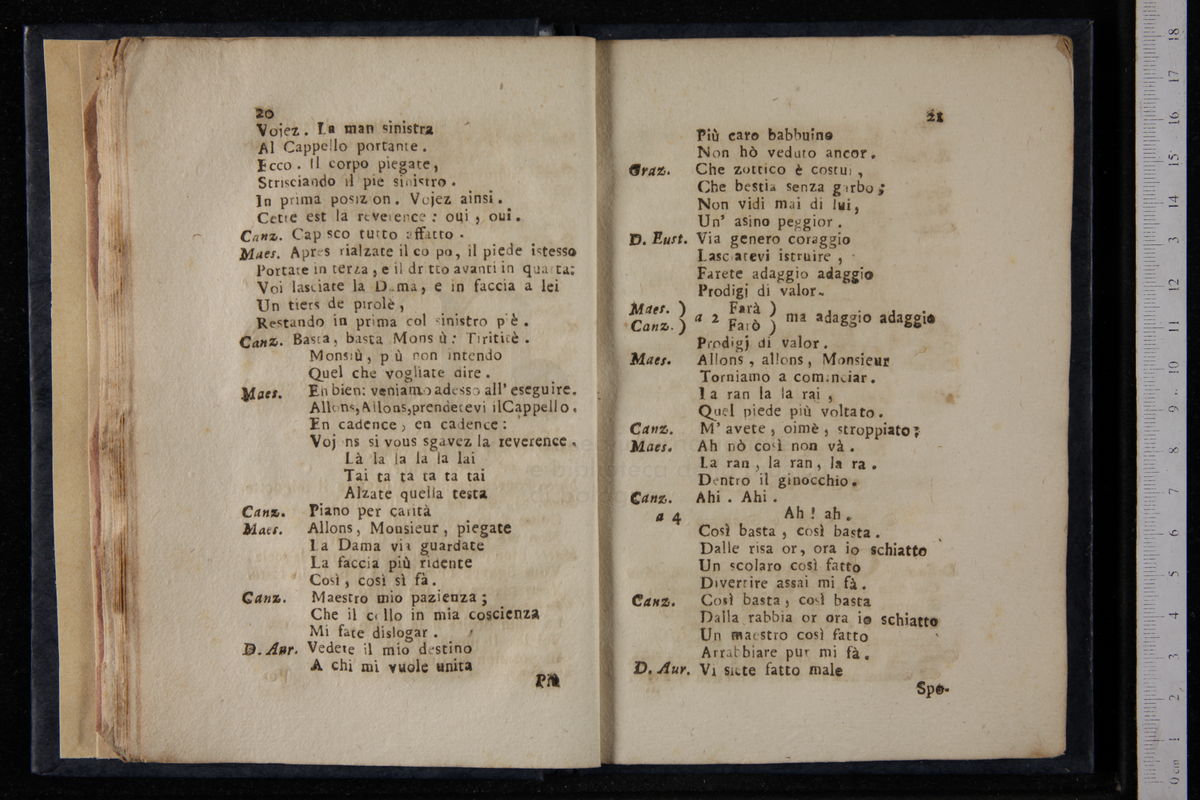 20
Vojez. La man sinistra
Al Cappello portante.
Ecco. Il corpo piegate,
Strisciando il pie sinistro.
In prima posizon. Vojez ainsi.
Cette est la reverence: oui, oui.
Canz. Capsco tutto affatto.
Maes. Apres rialzate il co po, il piede istesso
Portate in terza, e il dr tto avanti in quarta:
Voi lasciate la Dama, e in faccia a lei
Un tiers de pirolè,
Restando in prima col sinistro piè.
Canz. Basta, basta Mons ù: Tirititè.
Monsiù, più non intendo
Quel che vogliate dire.
Maes. En bien: veniamo adesso all' eseguire.
Allons, Allons, prendetevi il Cappello.
En cadence, en cadence:
Voj ns si vous sgavez la reverence.
Là la la la la lai
Tai ta ta ta ta tai
Alzate quella testa
Canz. Piano per carità
Maes. Allons, Monsieur, piegate
La Dama via guardate
La faccia più ridente
Così, così sì fà.
Canz. Maestro mio pazienza;
Che il collo in mia coscienza
Mi fate dislogar.
D. Aur. Vedete il mio destino
A chi mi vuole unita
Più
21
Più caro babbuino
Non hò veduto ancor.
Graz. Che zottico è costui,
Che bestia senza garbo;
Non vidi mai di lui,
Un' asino peggior.
D. Eust. Via genero coraggio
Lasciatevi istruire,
Farete adaggio adaggio
Prodigj di valor.
Maes. ) a 2 Farà ) ma adaggio adaggio
Canz. ) Farò )
Prodigj di valor.
Maes. Allons, allons, Monsieur
Torniamo a cominciar.
La ran la la rai,
Quel piede più voltato.
Canz. M' avete, oimè, stroppiato;
Maes. Ah nò così non và.
La ran, la ran, la ra.
Dentro il ginocchio.
Canz. Ahi. Ahi.
a 4 Ah! ah.
Così basta, così basta.
Dalle risa or, ora io schiatto
Un scolaro così fatto
Divertire assai mi fà.
Canz. Così basta, così basta
Dalla rabbia or ora io schiatto
Un maestro così fatto
Arrabbiare pur mi fà.
D. Aur. Vi siete fatto male
Spo-